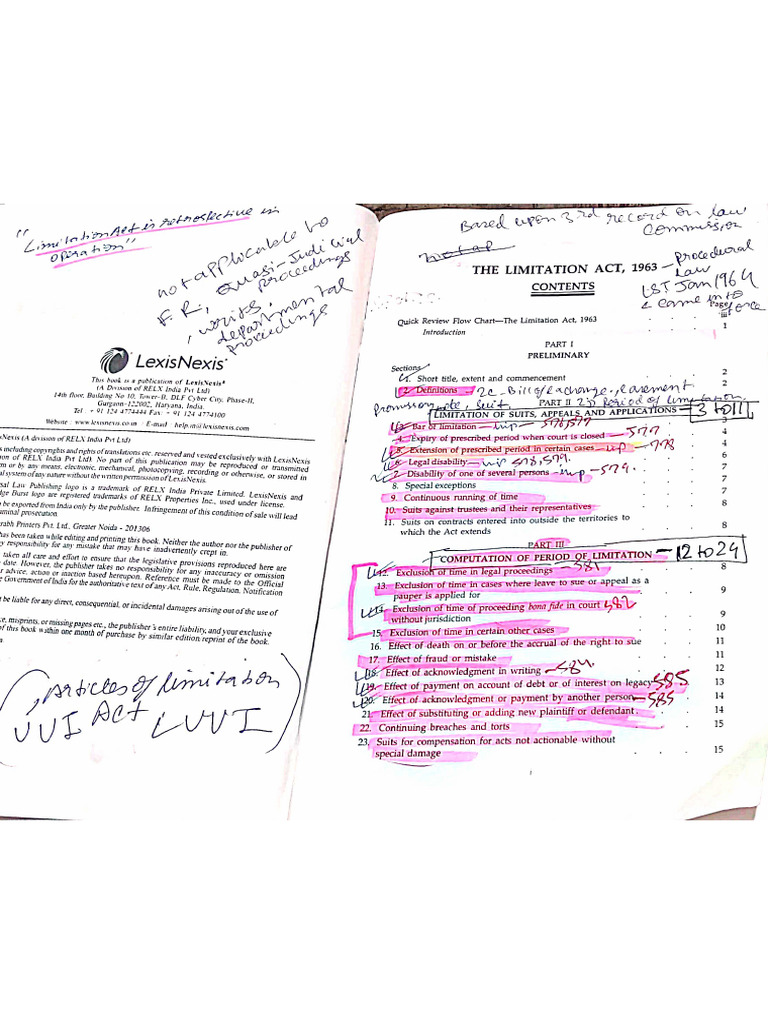 "Limitation Act is retrospective in
operation"
not applicable to
F.R, Quasi-Judicial
proceedings
, writs,
departmental
proceedings
LexisNexis®
This book is a publication of LexisNexis®
(A Division of RELX India Pvt Ltd)
14th floor, Building No 10, Tower-B, DLF Cyber City, Phase-II,
Gurgaon-122002, Haryana, India.
Tel : + 91 124 4774444 Fax: + 91 124 4774100
Website : www.lexisnexis.co.in E-mail : help.in@lexisnexis.com
Nexis (A division of RELX India Pvt Ltd)
including copyrights and rights of translations etc. reserved and vested exclusively with LexisNexis
on of RELX India Pvt Ltd). No part of this publication may be reproduced or transmitted
rm or by any means, electronic, mechanical, photocopying, recording or otherwise, or stored in
al system of any nature without the written permission of LexisNexis.
sal Law Publishing logo is a trademark of RELX India Private Limited. LexisNexis and
dge Burst logo are registered trademarks of RELX Properties Inc., used under license.
be exported from India only by the publisher. Infringement of this condition of sale will lead
minal prosecution.
rabh Printers Pvt. Ltd., Greater Noida - 201306
has been taken while editing and printing this book. Neither the author nor the publisher of
y responsibility for any mistake that may have inadvertently crept in.
taken all care and effort to ensure that the legislative provisions reproduced here are
date. However, the publisher takes no responsibility for any inaccuracy or omission
r advice, action or inaction based hereupon. Reference must be made to the Official
Government of India for the authoritative text of any Act, Rule, Regulation, Notification
t be liable for any direct, consequential, or incidental damages arising out of the use of
e, misprints, or missing pages etc., the publisher's entire liability, and your exclusive
of this book within one month of purchase by similar edition reprint of the book.
Articles of limitation
VVI Act VVI
Based upon 3rd record on law
Commission
THE LIMITATION ACT, 1963 – procedural
law
CONTENTS
1st Jan 1964
came into
force
Page
Quick Review Flow Chart—The Limitation Act, 1963
Introduction 1
PART I
PRELIMINARY
Sections
1. Short title, extent and commencement 2
2. Definitions – 2c - Bill of exchange, easement 2
PART II 2j Period of limitation
promissory note, suit,
LIMITATION OF SUITS, APPEALS AND APPLICATIONS – 3 to 11
3. Bar of limitation – imp – 576,577 3
4. Expiry of prescribed period when court is closed – 577 4
5. Extension of prescribed period in certain cases – imp – 778 4
6. Legal disability – imp 578,579. 6
7. Disability of one of several persons – imp – 579. 7
8. Special exceptions 7
9. Continuous running of time 7
10. Suits against trustees and their representatives 8
11. Suits on contracts entered into outside the territories to
which the Act extends 8
PART III
COMPUTATION OF PERIOD OF LIMITATION – 12 to 24
12. Exclusion of time in legal proceedings – 581 8
13. Exclusion of time in cases where leave to sue or appeal as a
pauper is applied for 9
14. Exclusion of time of proceeding bona fide in court 582
without jurisdiction 9
15. Exclusion of time in certain other cases 10
16. Effect of death on or before the accrual of the right to sue 11
17. Effect of fraud or mistake 11
18. Effect of acknowledgment in writing – 584 12
19. Effect of payment on account of debt or of interest on legacy 585 13
20. Effect of acknowledgment or payment by another person – 585 14
21. Effect of substituting or adding new plaintiff or defendant 14
22. Continuing breaches and torts 15
23. Suits for compensation for acts not actionable without
special damage 15